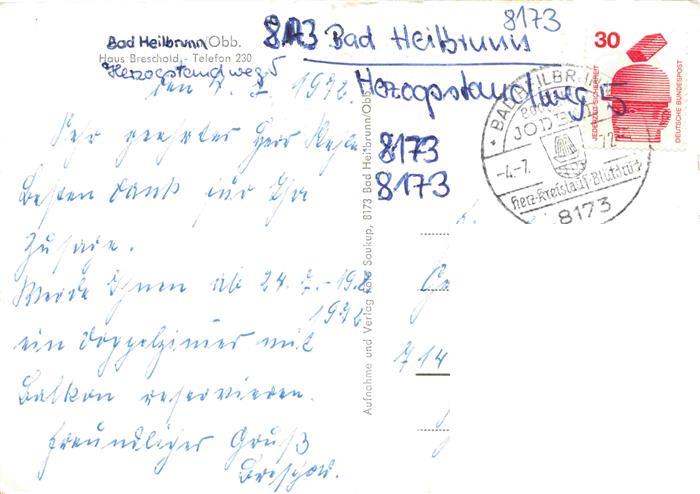 8173
Bad Heilbrunn/Obb.
8173 Bad Heilbrunn
Haus Breschold, - Telefon 230
Herzogstandweg 5
Herzogstandweg 5
den 7. 1972.
Sehr geehrter Herr
8173
8173
Besten Dank für Ihre
Zusage.
Werde Ihnen ab 24. 7. - 19.8
1972
ein Doppelzimer mit
Balkon reservieren.
Freundlicher Gruß
Breschold.
Aufnahme und Verlag Foto Soukup, 8173 Bad Heilbrunn/Obb.
714
30
JEDERZEIT SICHERHEIT
DEUTSCHE BUNDESPOST
BAD HEILBRUNN
JOD
-4.-7. 72
Herz-Kreislauf-Blutdruck
8173